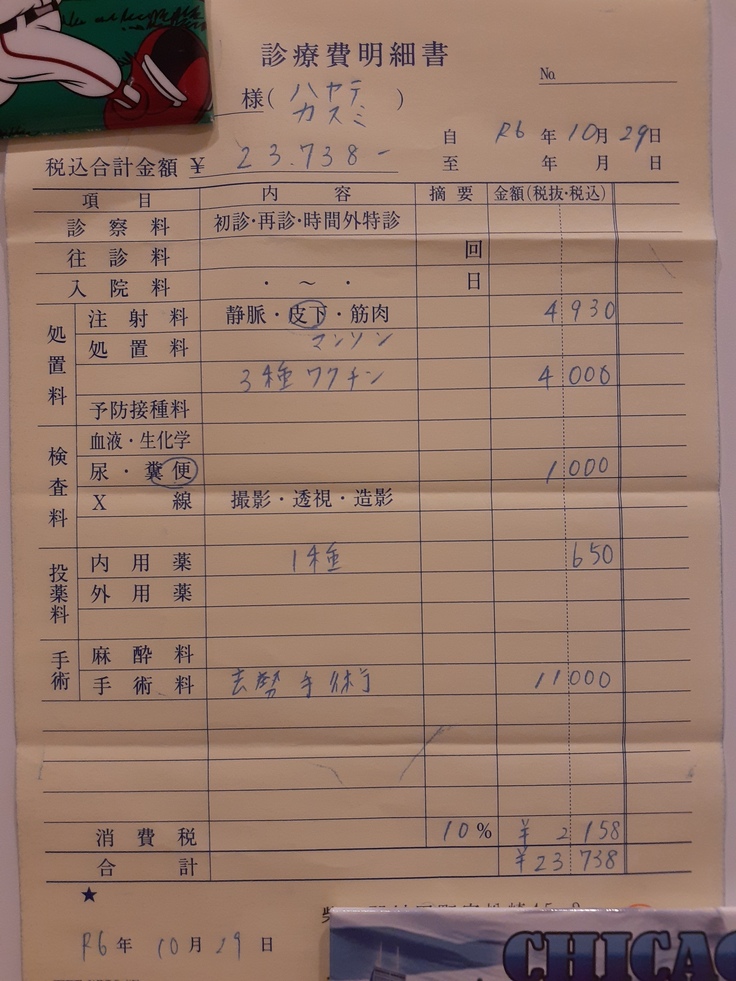 診療費明細書
No.
様(ハヤテ カスミ)
自 R6年10月29日
税込合計金額 ¥ 23.738-
至 年 月 日
項目 内容 摘要 金額(税抜・税込)
診察料 初診・再診・時間外特診
往診料 回
入院料 ・ ～ ・ 日
処置料
注射料 静脈・皮下・筋肉 4930
処置料 マンソン
3種ワクチン 4000
予防接種料
検査料
血液・生化学
尿・糞便 1000
X線 撮影・透視・造影
投薬料
内用薬 1種 650
外用薬
手術
麻酔料
手術料 去勢手術 11000
消費税 10% ¥2158
合計 ¥23738
★
R6年10月29日
CHICAG